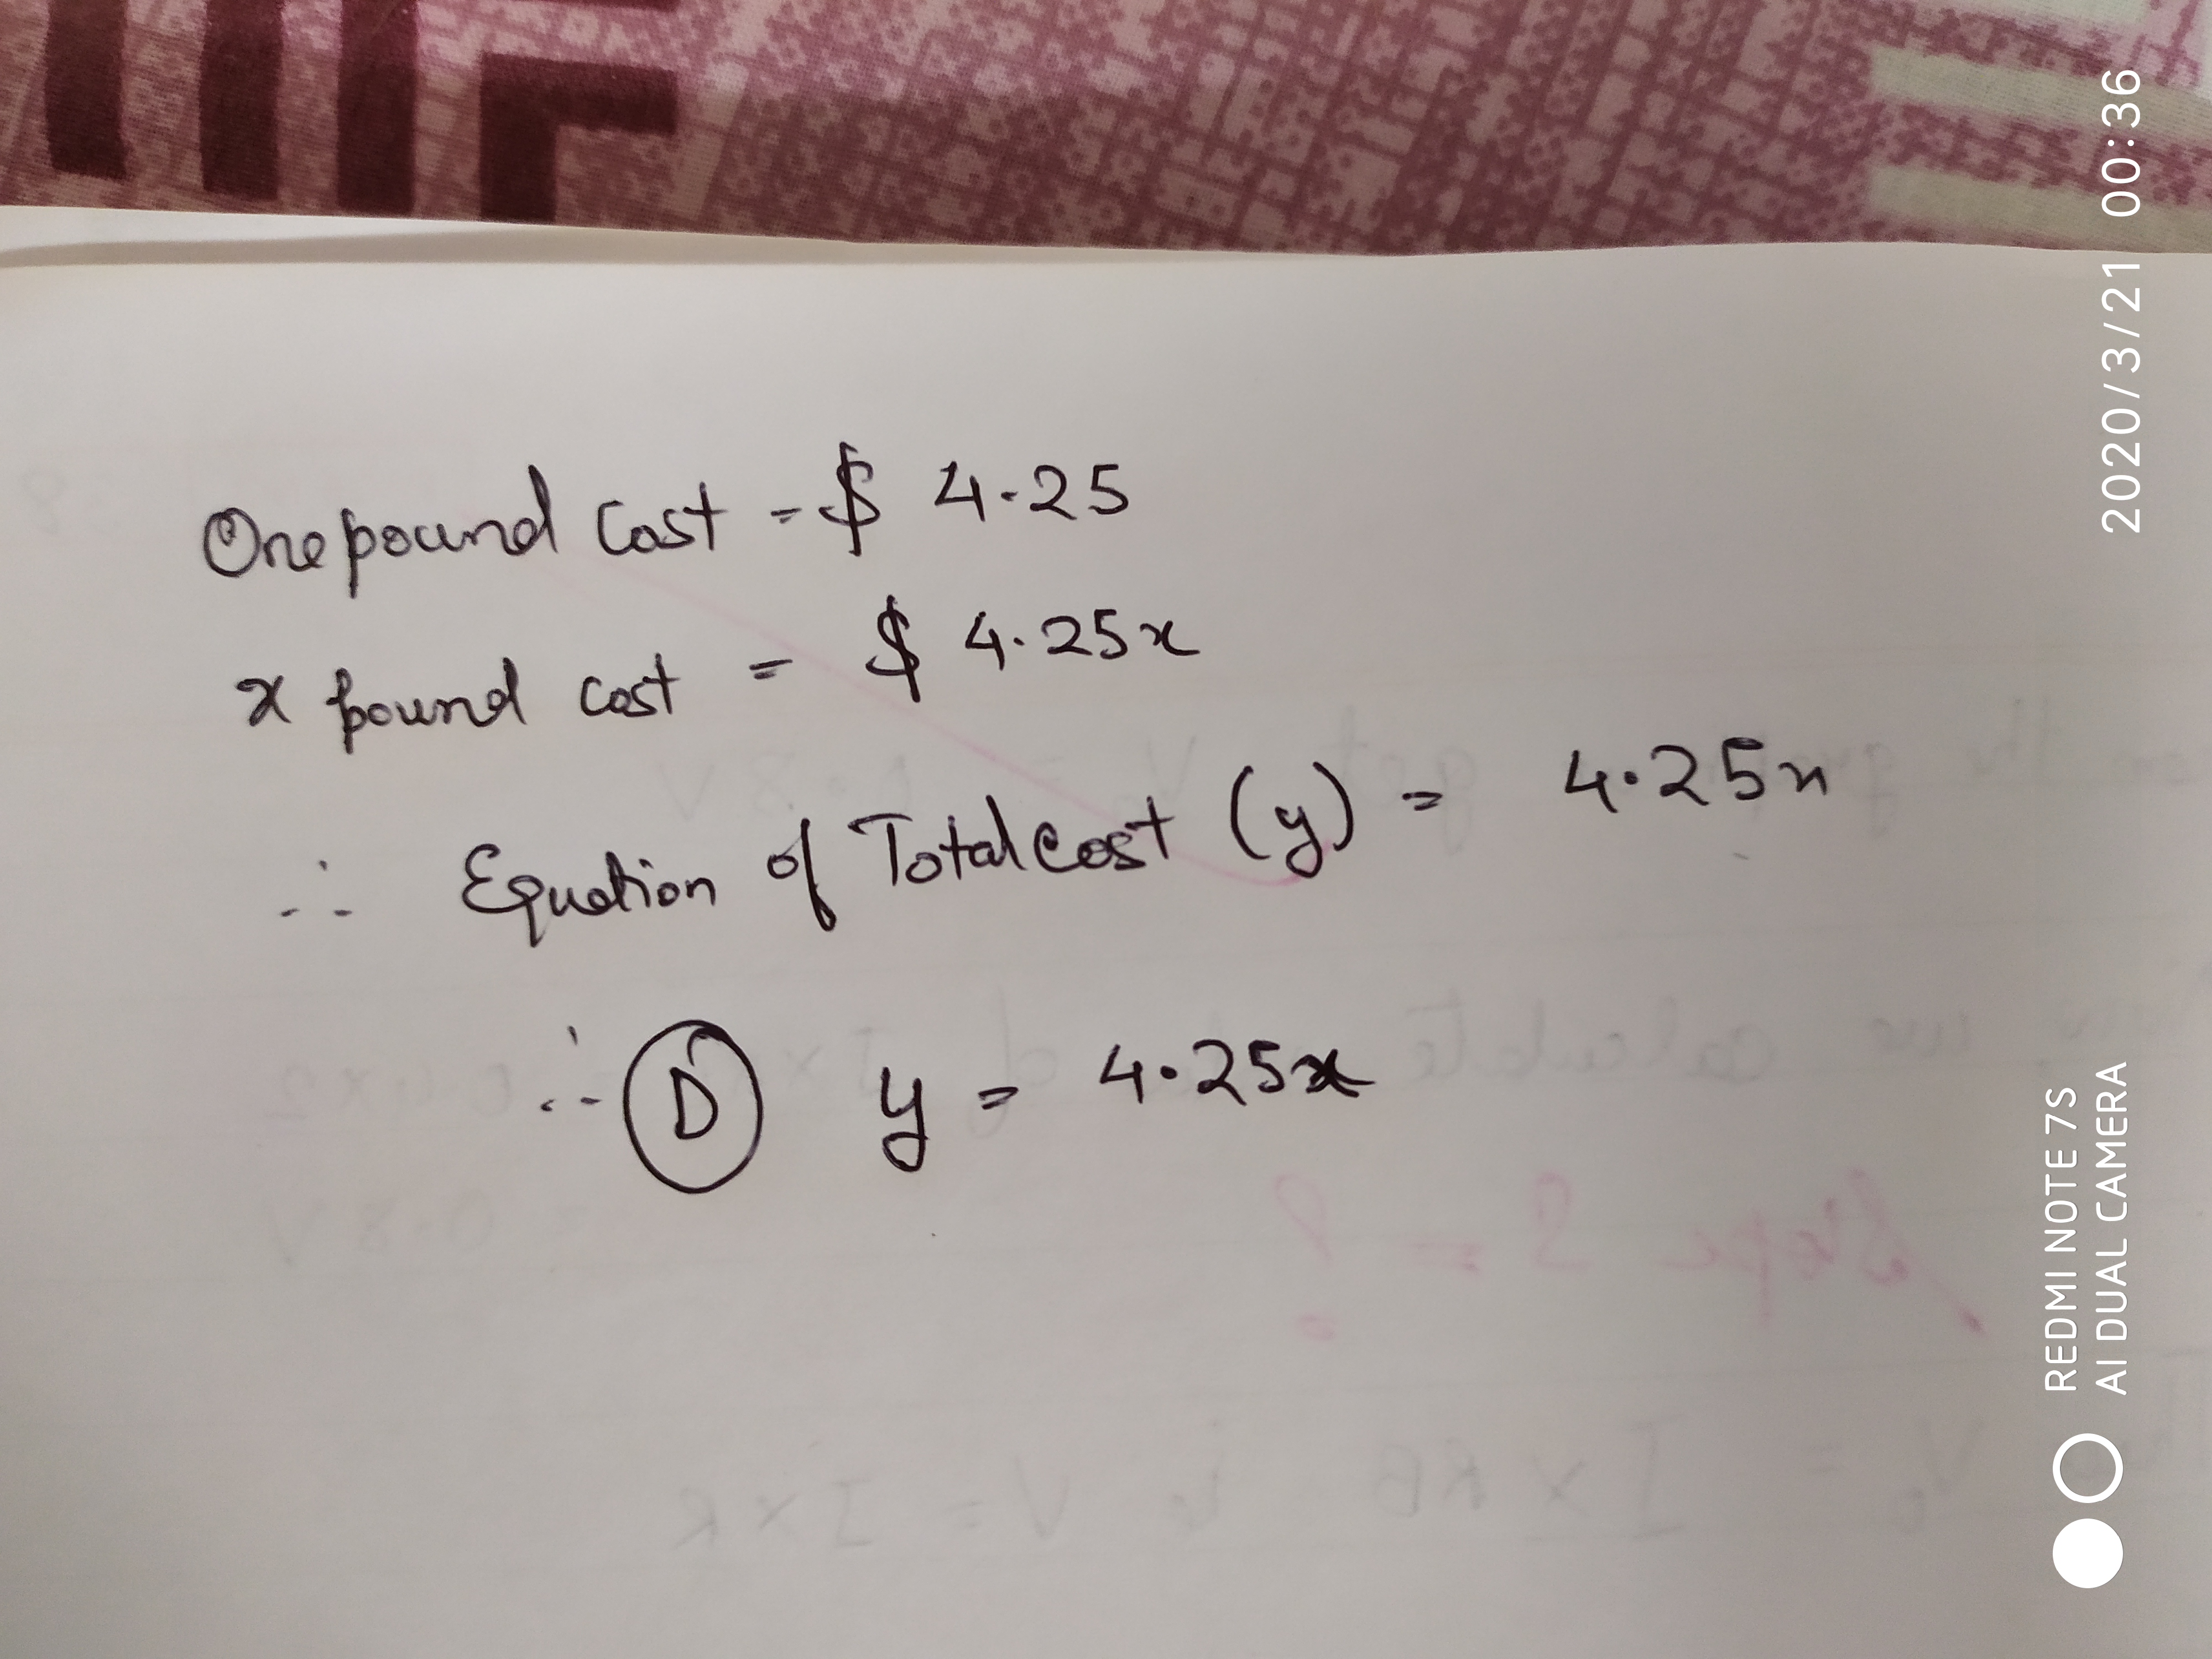 One pound Cost = $ 4.25
x pound cost = $ 4.25x
∴ Equation of Total Cost (y) = 4.25x
∴ D y = 4.25x
2020/3/21 00:36
REDMI NOTE 7S
AI DUAL CAMERA